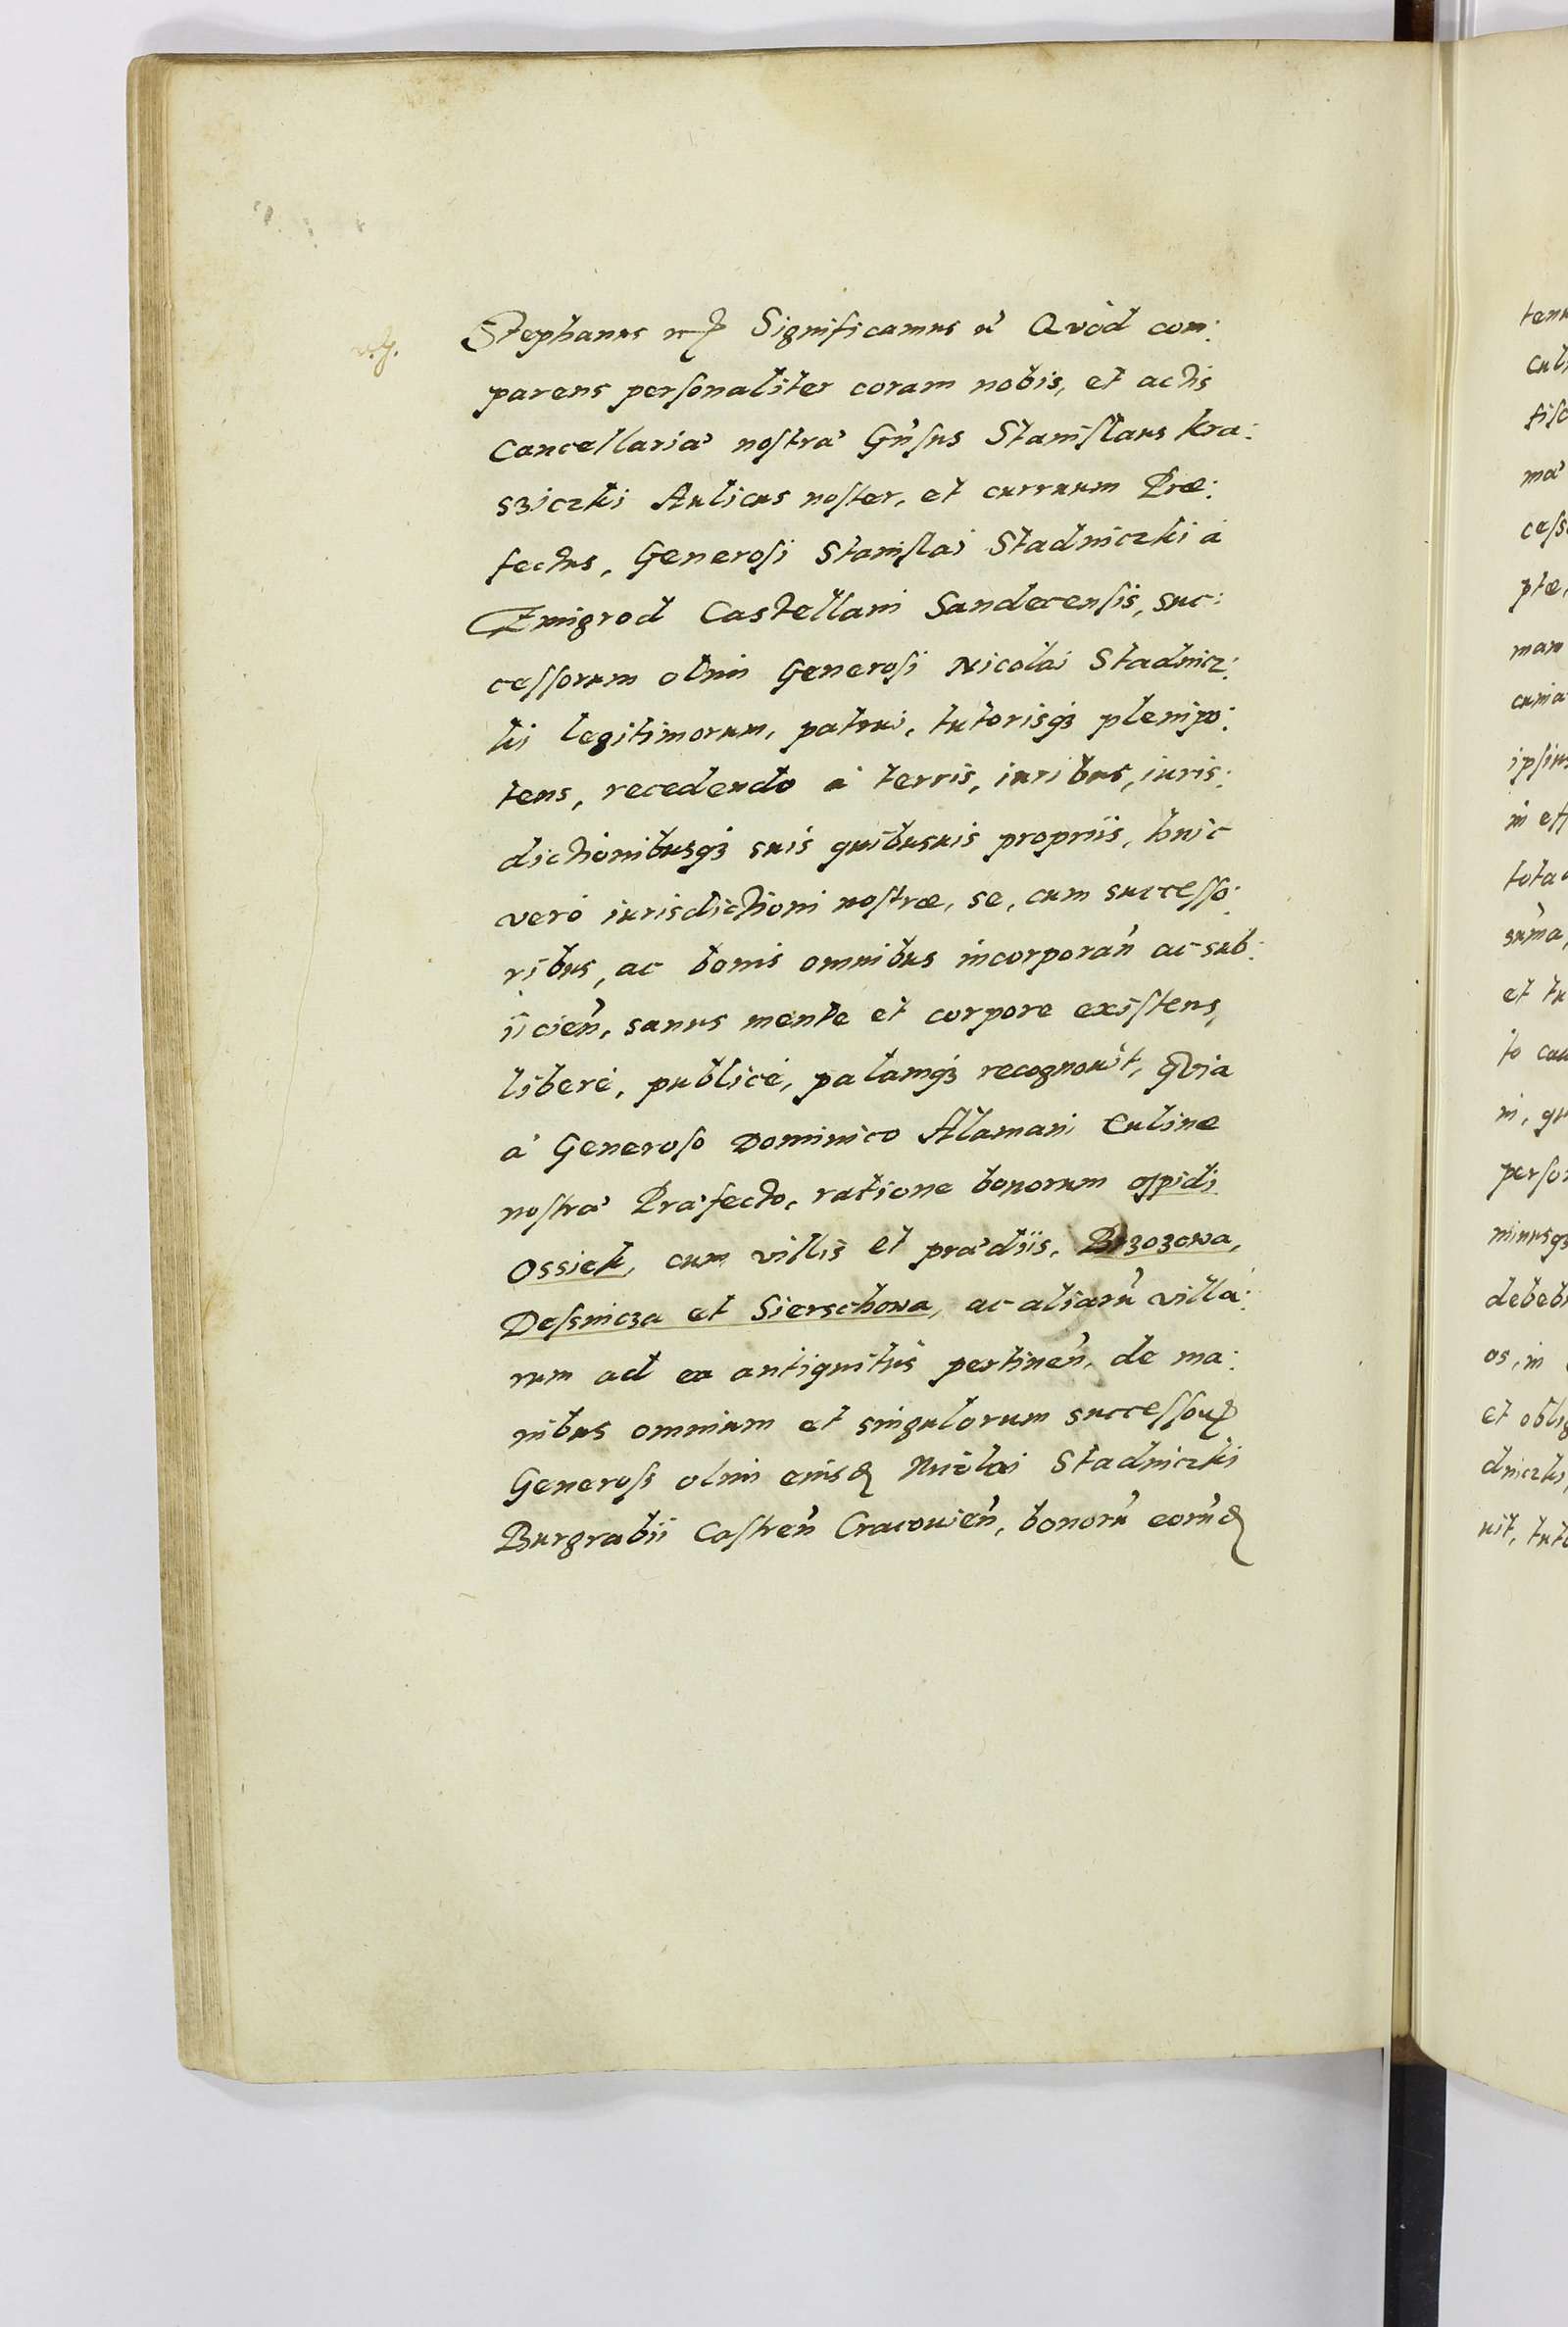 Stephanus etc Significamus etc Quòd com:
parens personaliter coram nobis, et actis
Cancellariæ nostræ Gn̄sus Stanislaus Kra:
sziczki Aulicus noster, et curruum Præ:
fectus, Generosi Stanislai Stadniczki à
Zmigrod Castellani Sandecensis, suc:
cessorum olim Generosi Nicolai Stadnicz:
ki legitimorum, patrui, tutorisqʒ plenipo:
tens, recedendo à terris, iuribus, iuris:
dictionibusqʒ suis quibusuis propriis, huic
verò iurisdictioni nostræ, se, cum successo:
ribus, ac bonis omnibus incorporan̄ ac sub:
iicien̄, sanus mente et corpore existens,
liberè, publicè, palamqʒ recognouit, Quia
à Generoso Dominico Alamani Culinæ
nostræ Præfecto, ratione bonorum oppidi
Ossiek, cum villis et prædiis, Brzozowa,
Desnicza et Sierschowa, ac aliarū villa:
rum ad ea antiquitùs pertinen̄, de ma:
nibus omnium et singulorum successorꝝ
Generosi olim eiusd Nicolai Stadniczki
Burgrabii Castren̄ Cracouien̄, bonorū eorūd